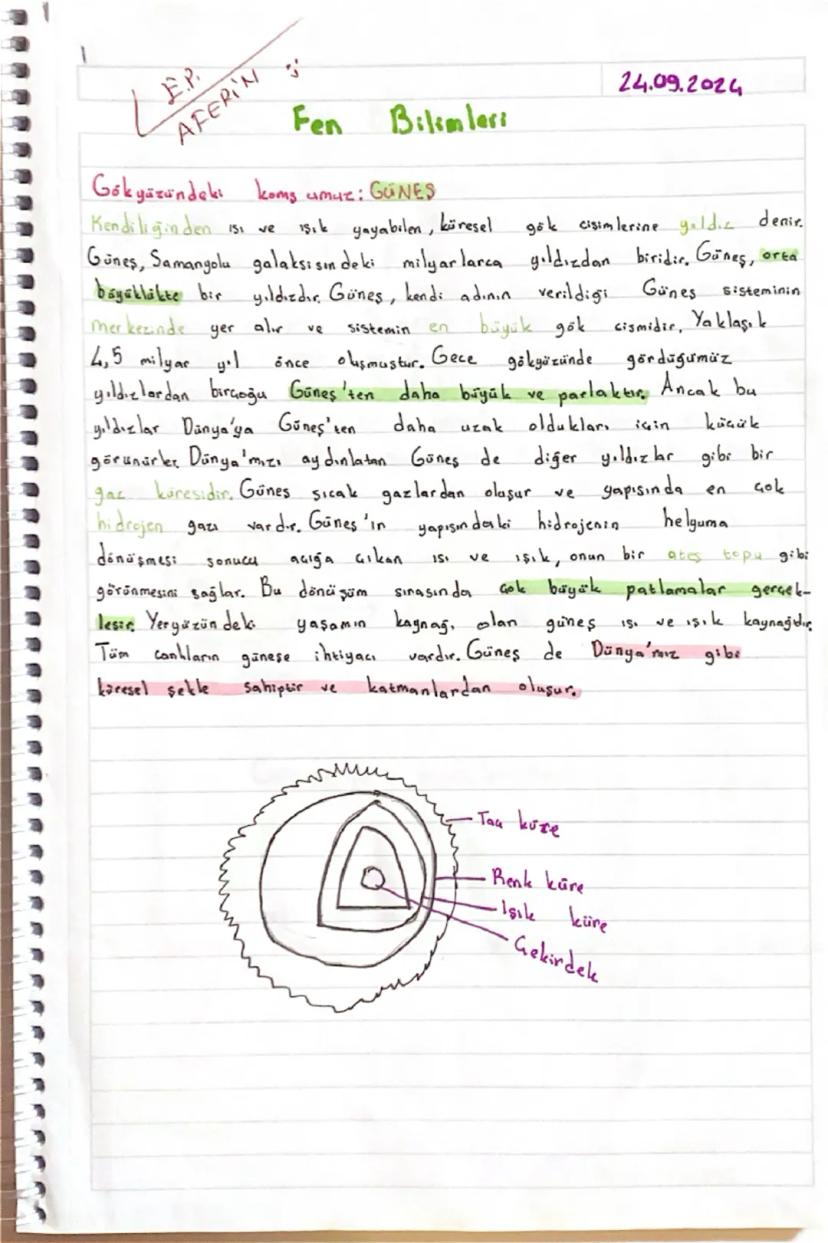 E.P.
AFERİN
24.09.2024
Fen Bilimleri
Gökyüzündeki komşumuz: GÜNEŞ
Kendiliğinden ısı ve ışık yayabilen, küresel gök cisimlerine yıldız denir.
Güneş, Samanyolu galaksisindeki milyarlarca yıldızdan biridir. Güneş, orta
büyüklükte bir yıldızdır. Güneş, kendi adının verildiği Güneş sisteminin
merkezinde yer alır ve sistemin en büyük gök cismidir. Yaklaşık
4,5 milyar yıl önce oluşmuştur. Gece gökyüzünde gördüğümüz
yıldızlardan birçoğu Güneş'ten daha büyük ve parlaktır. Ancak bu
yıldızlar Dünya'ya Güneş'ten daha uzak oldukları için küçük
görünürler. Dünya'mızı aydınlatan Güneş de diğer yıldızlar gibi bir
gaz küresidir. Güneş sıcak gazlardan oluşur ve yapısında en çok
hidrojen gazı vardır. Güneş'in yapısındaki hidrojenin helyuma
dönüşmesi sonucu açığa çıkan ısı ve ışık, onun bir ateş topu gibi
görünmesini sağlar. Bu dönüşüm sırasında çok büyük patlamalar gerçek-
leşir. Yeryüzündeki yaşamın kaynağı olan güneş ısı ve ışık kaynağıdır.
Tüm canlıların güneşe ihtiyacı vardır. Güneş de Dünya'mız gibi
küresel şekle sahiptir ve katmanlardan oluşur.
Taç küre
Renk küre
Işık küre
Çekirdek